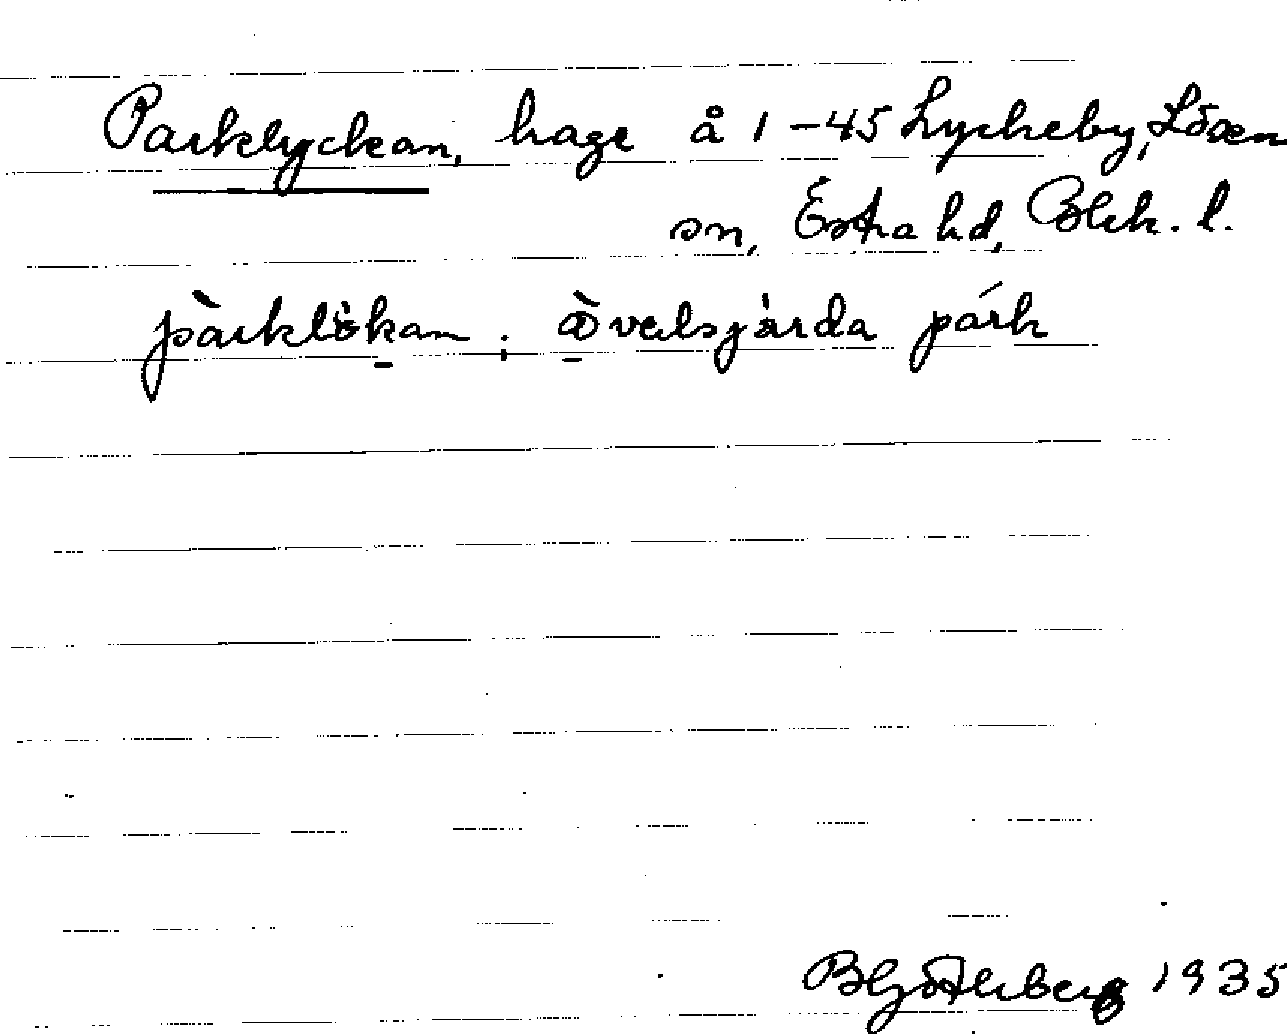 Parklyckan, hage å 1-45 Lyckeby, Lösen
sn, Östra hd, Blek. l.
pàrklökan : òvelsgàrda párk
B Götlerberg 1935